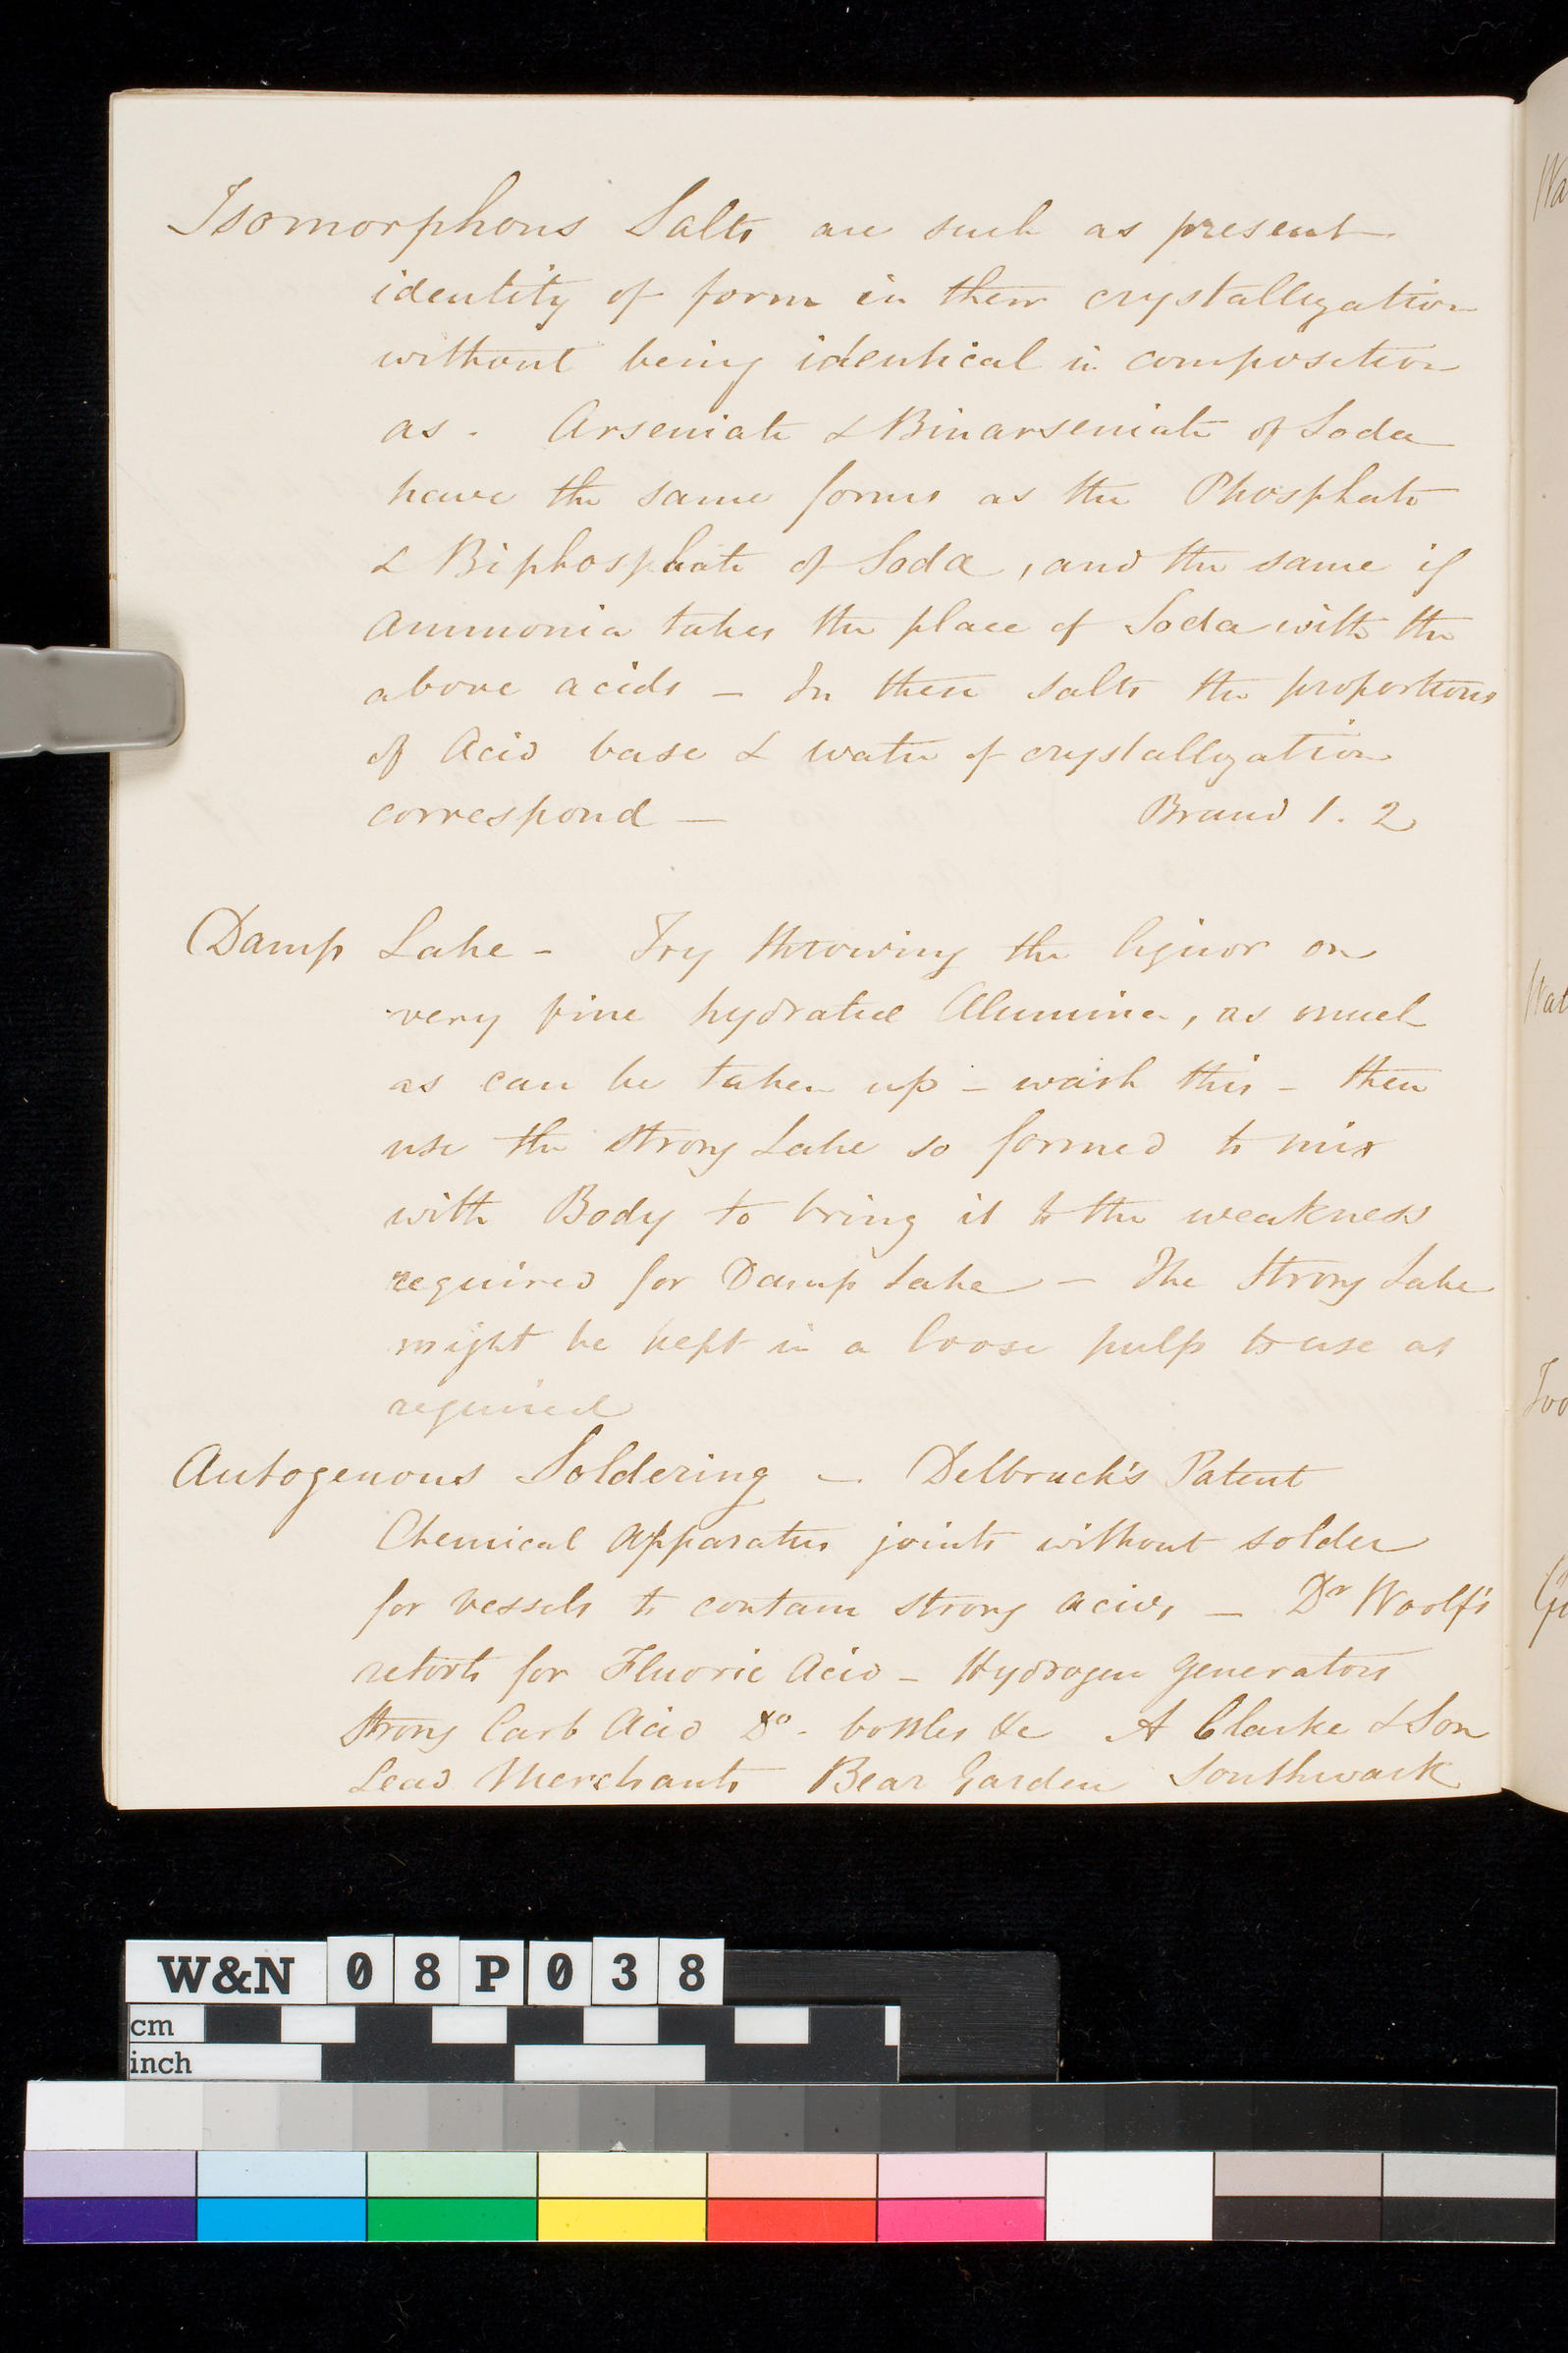 Isomorphous Salts are such as present
identity of form in their crystallization
without being identical in composition
as. Arseniate & Binarseniate of Soda
have the same forms as the Phosphate
& Biphosphate of Soda, and the same if
Ammonia takes the place of Soda with the
above acids – In these salts the proportions
of Acid base & water of crystallization
correspond – Brand 1. 2
Damp Lake – Try throwing the liquor on
very fine hydrated Alumina, as much
as can be taken up – wash this – then
use the strong Lake so formed to mix
with Body to bring it to the weakness
required for Damp Lake – The Strong Lake
might be kept in a loose pulp to use as
required
Autogenous Soldering – Delbruck's Patent
Chemical Apparatus joints without solder
for vessels to contain strong acids – Dr Woolf's
retorts for Fluoric Acid – Hydrogen Generators
Strong Carb Acid Do – bottles &c A Clarke & Son
Lead Merchants Bear Garden Southwark
W&N 08P038
cm
inch